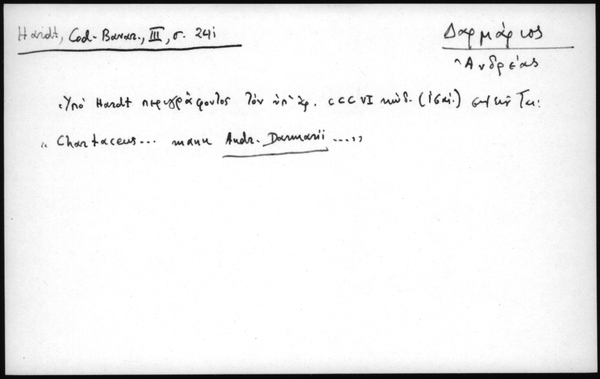 Hardt, Cod. Bavar., III, σ. 241
Δαρμάριος
Ἀνδρέας
Ὑπὸ Hardt περιγράφοντος τὸν ὑπ' ἀρ. CCCVI κώδ. (ἰσαι.)
"Chartaceus... manu Andr. Darmarii ...."